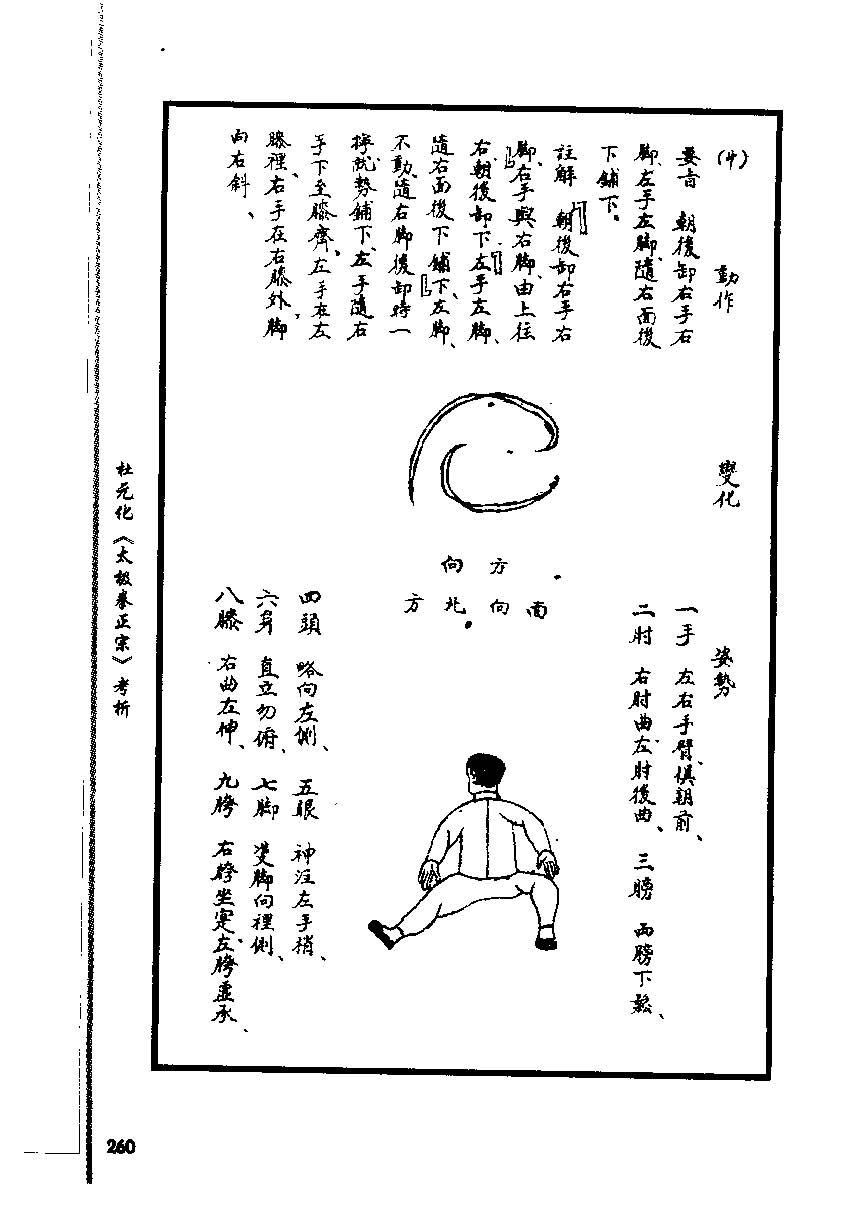 (4)　動作
要旨　朝後卸右手右
脚、左手左脚、隨右面後
下鋪下。
註解　「朝後卸右手右
脚」、右手與右脚、由上往
右、朝後卸下、「左手左脚、
隨右面後下鋪下」、左脚、
不動、隨右脚後卸時一
擰、就勢鋪下、左手隨右
手下至膝齊、左手在左
膝裡、右手在右膝外、脚
向右斜、
變化
方向
南向北方
姿勢
一手　左右手臂、俱朝前、
二肘　右肘曲、左肘後曲、　三膀　両膀下鬆、
四頭　略向左側、　五眼　神注左手梢、
六身　直立勿俯、　七脚　雙脚向裡側、
八膝　右曲左伸、　九胯　右胯坐定、左胯虛承、
杜元化《太极拳正宗》考析
260